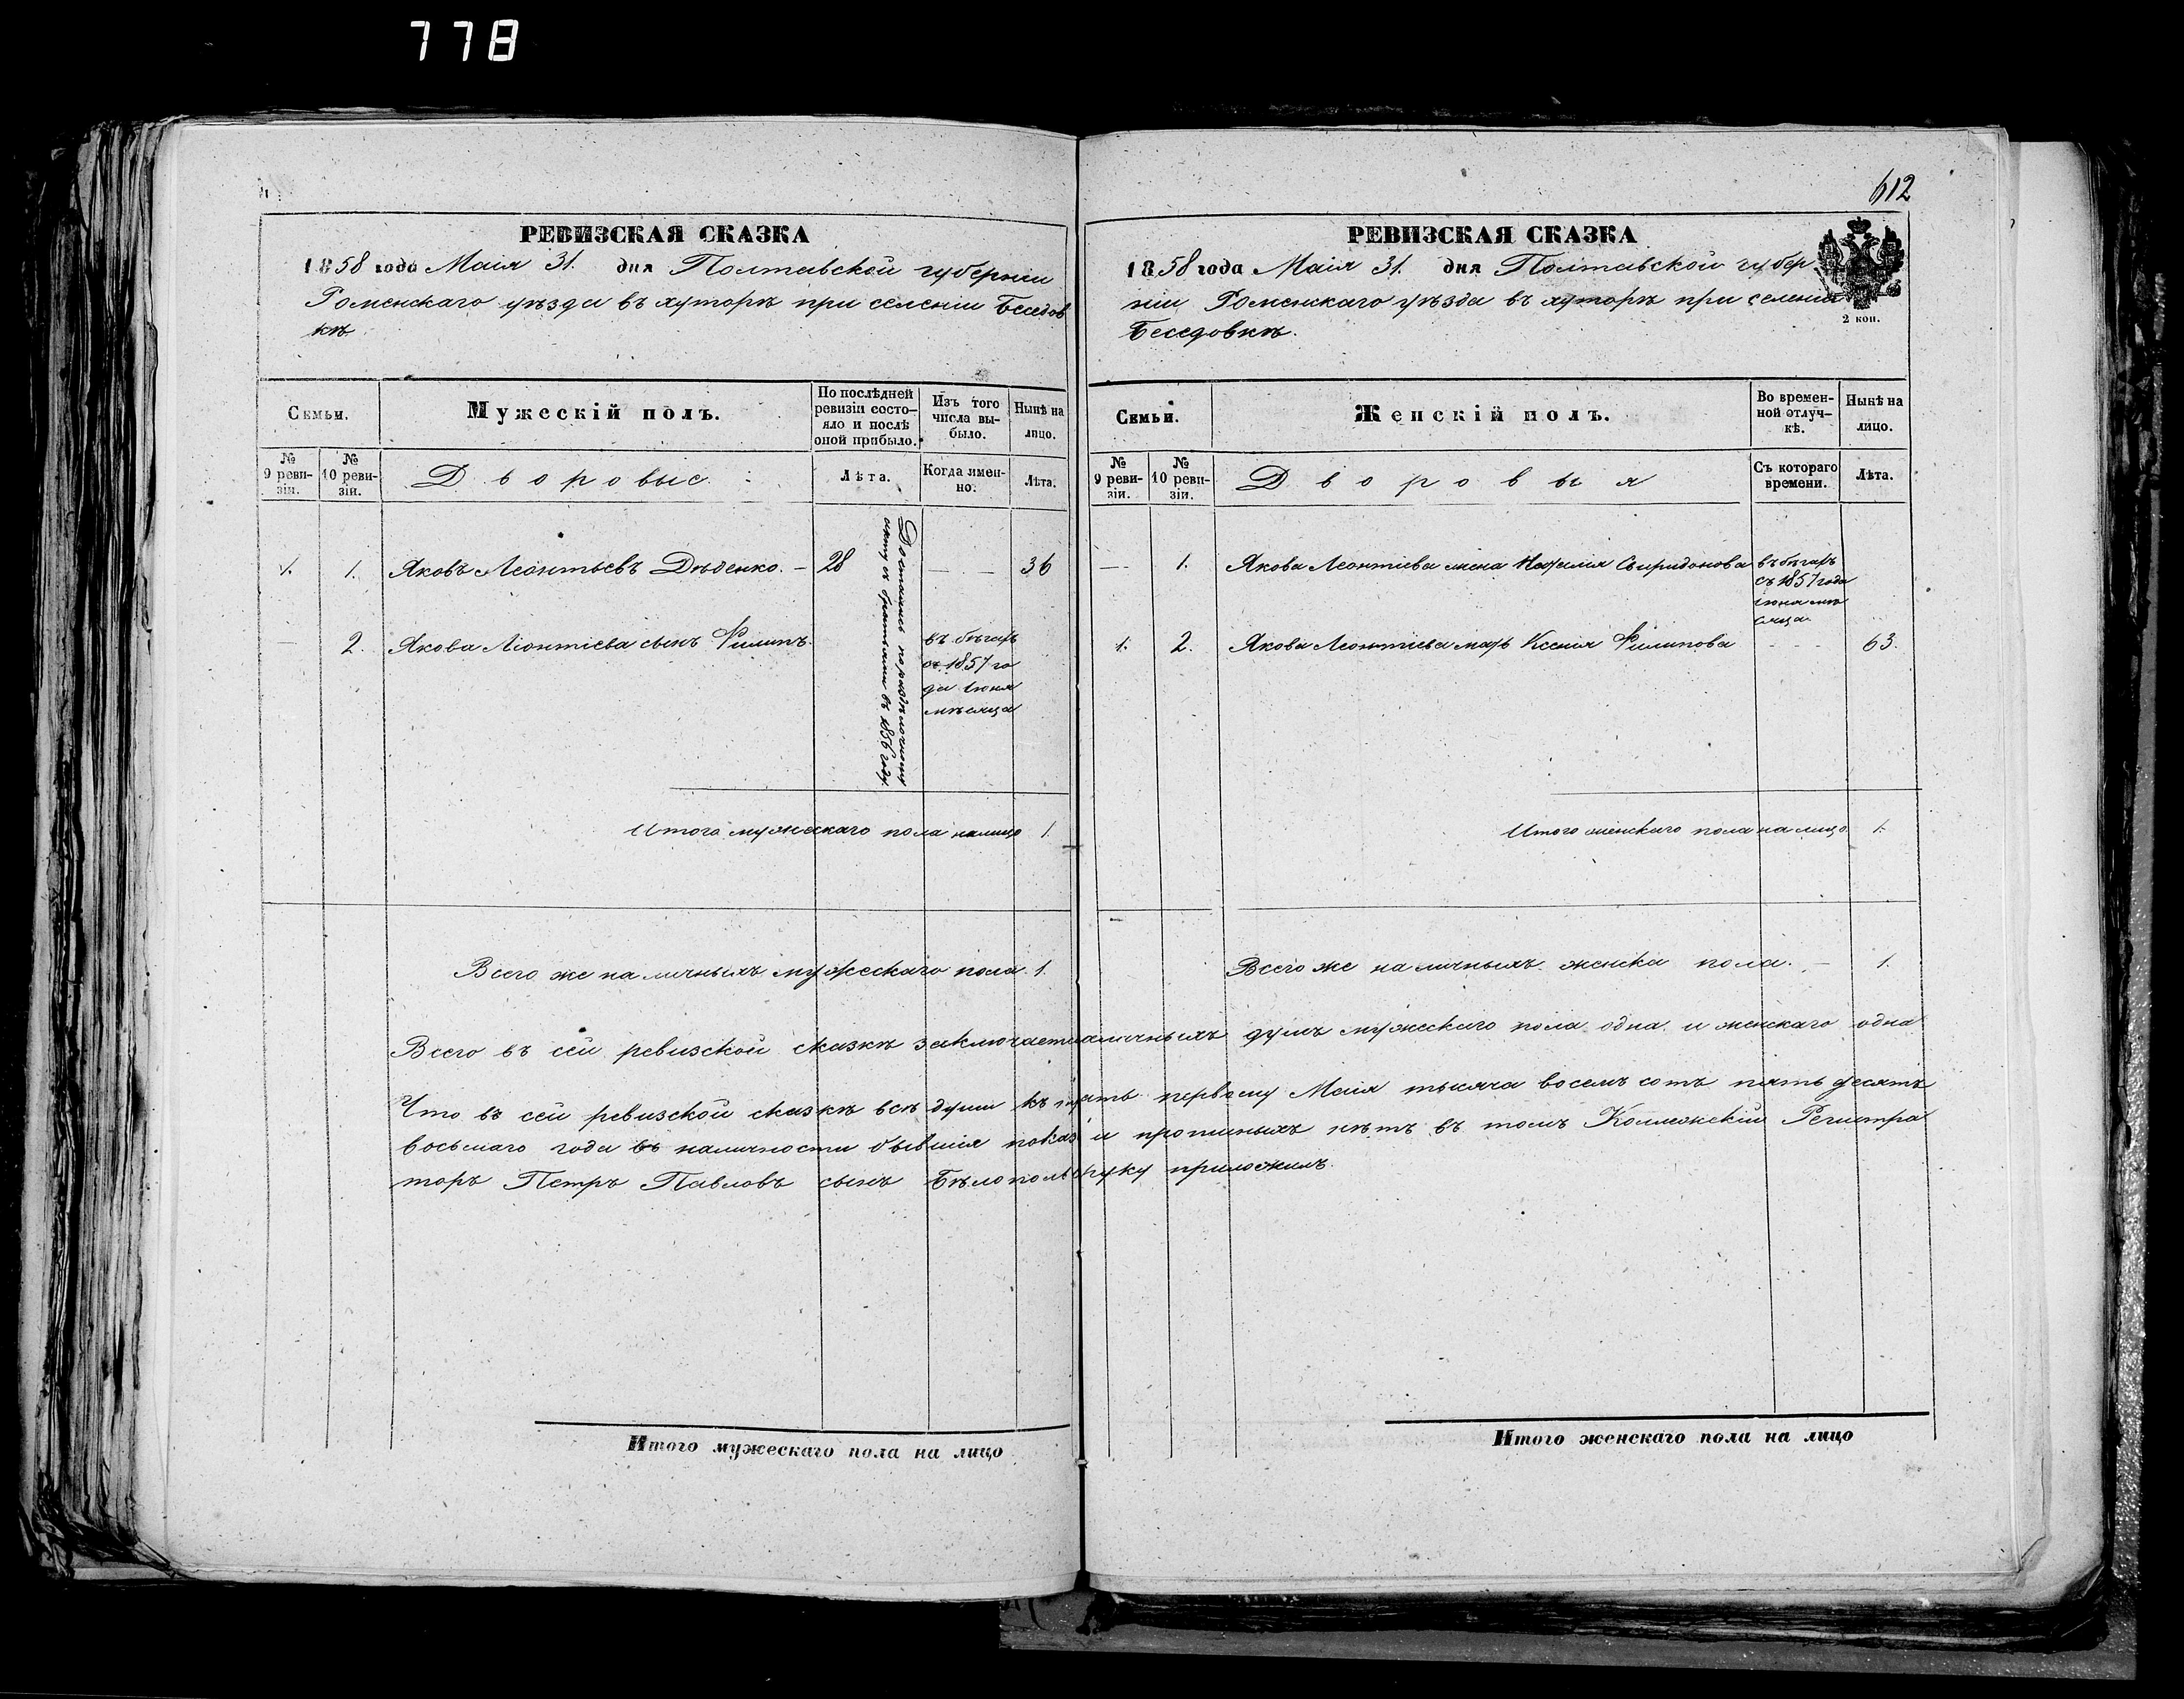 778
612
РЕВИЗСКАЯ СКАЗКА
1858 года Маія 31. дня Полтавской губерніи
Роменскаго уѣзда въ хуторѣ при селеніи Беседов
кѣ
Семьи.
Мужескій полъ.
По послѣдней
ревизіи состо-
яло и послѣ
оной прибыло.
Изъ того
числа вы-
было.
Нынѣ на
лицо.
№
9 реви-
зіи.
№
10 реви-
зіи.
Дворовые:
Лѣта.
Когда имен-
но.
Лѣта.
1. 1. Яковъ Леонтьевъ Дѣденко. — 28 — — 36
Достались по раздѣлочному
акту съ братьями въ 1856 году.
— 2. Якова Леонтіева сынъ Филипъ.
въ бѣгахъ
съ 1857 го
да Іюня
мѣсяца
Итого мужескаго пола налицо 1.
Всего же наличныхъ мужескаго пола. 1.
РЕВИЗСКАЯ СКАЗКА
1858 года Маія 31. дня Полтавской губер
ніи Роменскаго уѣзда въ хуторѣ при селеніи
Беседовкѣ.
2 коп.
Семьи.
Женскій полъ.
Во времен-
ной отлуч-
кѣ.
Нынѣ на
лицо.
№
9 реви-
зіи.
№
10 реви-
зіи.
Дворовыя
Съ котораго
времени.
Лѣта.
— 1. Якова Леонтіева жена Наталія Свиридонова
въ бѣгахъ
съ 1857 года
Іюня мѣ
сяца.
1. 2. Якова Леонтіева мать Ксенія Филипова - - - 63.
Итого женскаго пола на лицо. 1.
Всего же наличныхъ женска пола. — 1.
Всего въ сей ревизской сказкѣ заключается наличныхъ душъ мужескаго пола одна и женскаго одна
Что въ сей ревизской сказкѣ всѣ души къ тридцать первому Маія тысяча восемъ сотъ пять десятъ
восьмаго года въ наличности бывшія показаны и прописныхъ нѣтъ въ томъ Коллежскій Регистра
торъ Петръ Павловъ сынъ руку приложилъ.
Итого мужескаго пола на лицо
Итого женскаго пола на лицо